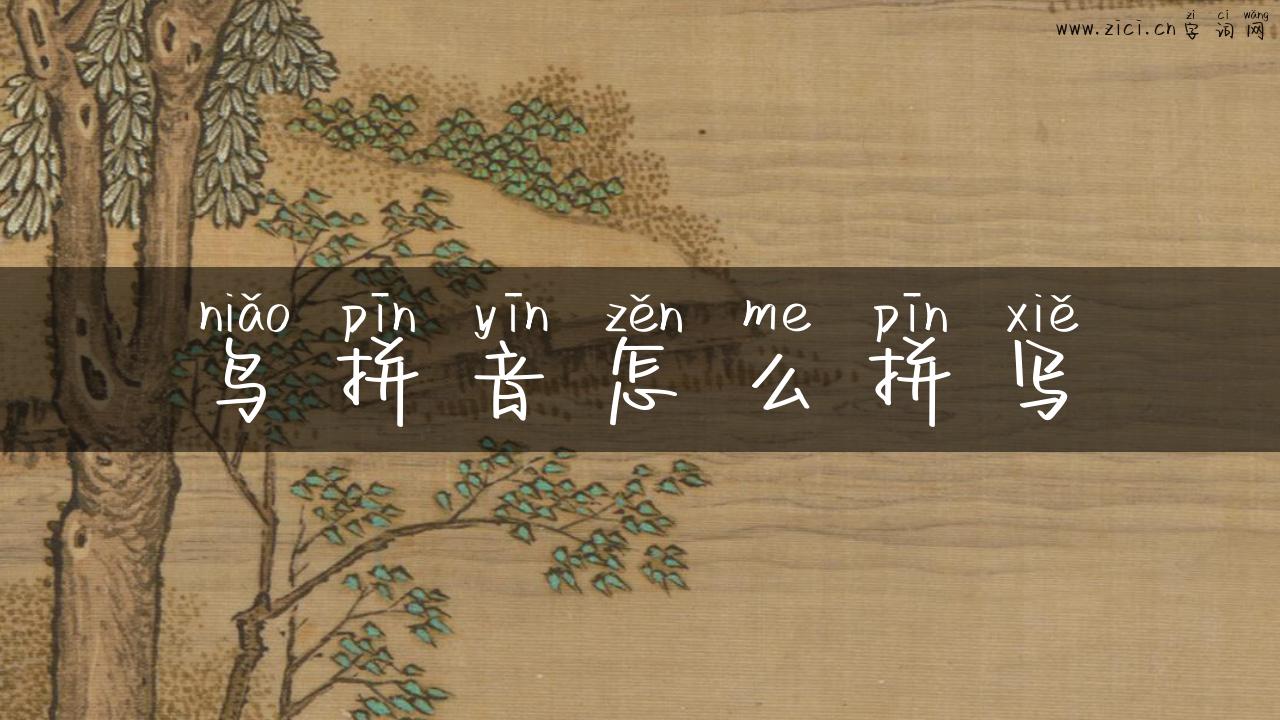 zì cí wǎng
www.zici.cn 字词网
niǎo pīn yīn zěn me pīn xiě
鸟拼音怎么拼写